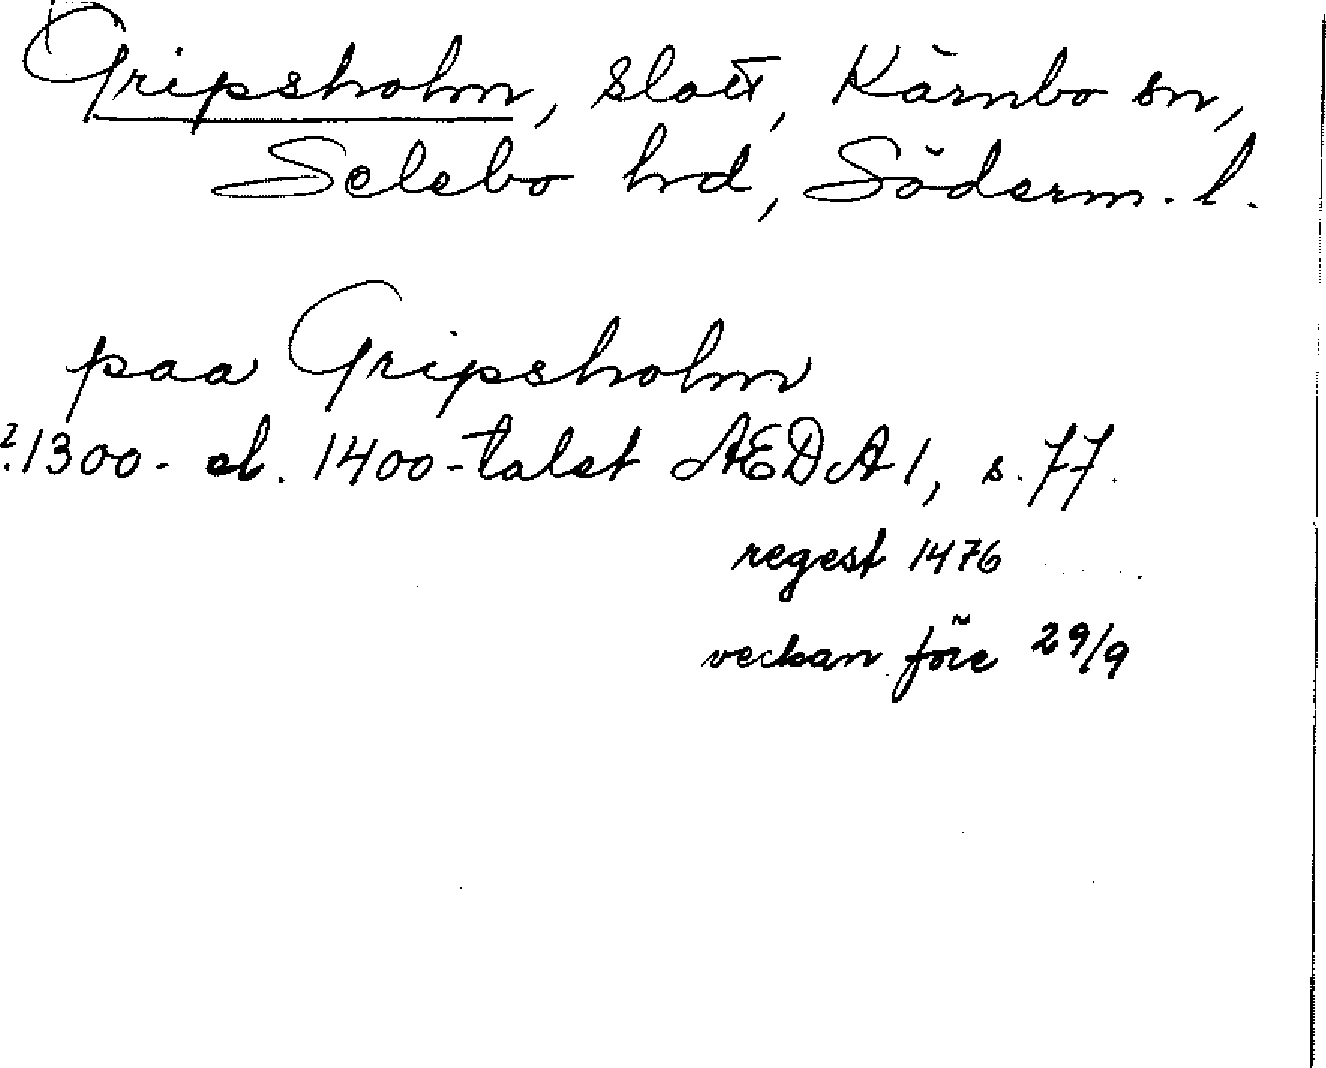 Gripsholm, slott, Kärnbo sn,
Selebo hd, Söderm. l.
paa Gripsholm
?1300- el. 1400-talet AEDA 1, s. 77.
regest 1476
veckan före 29/9